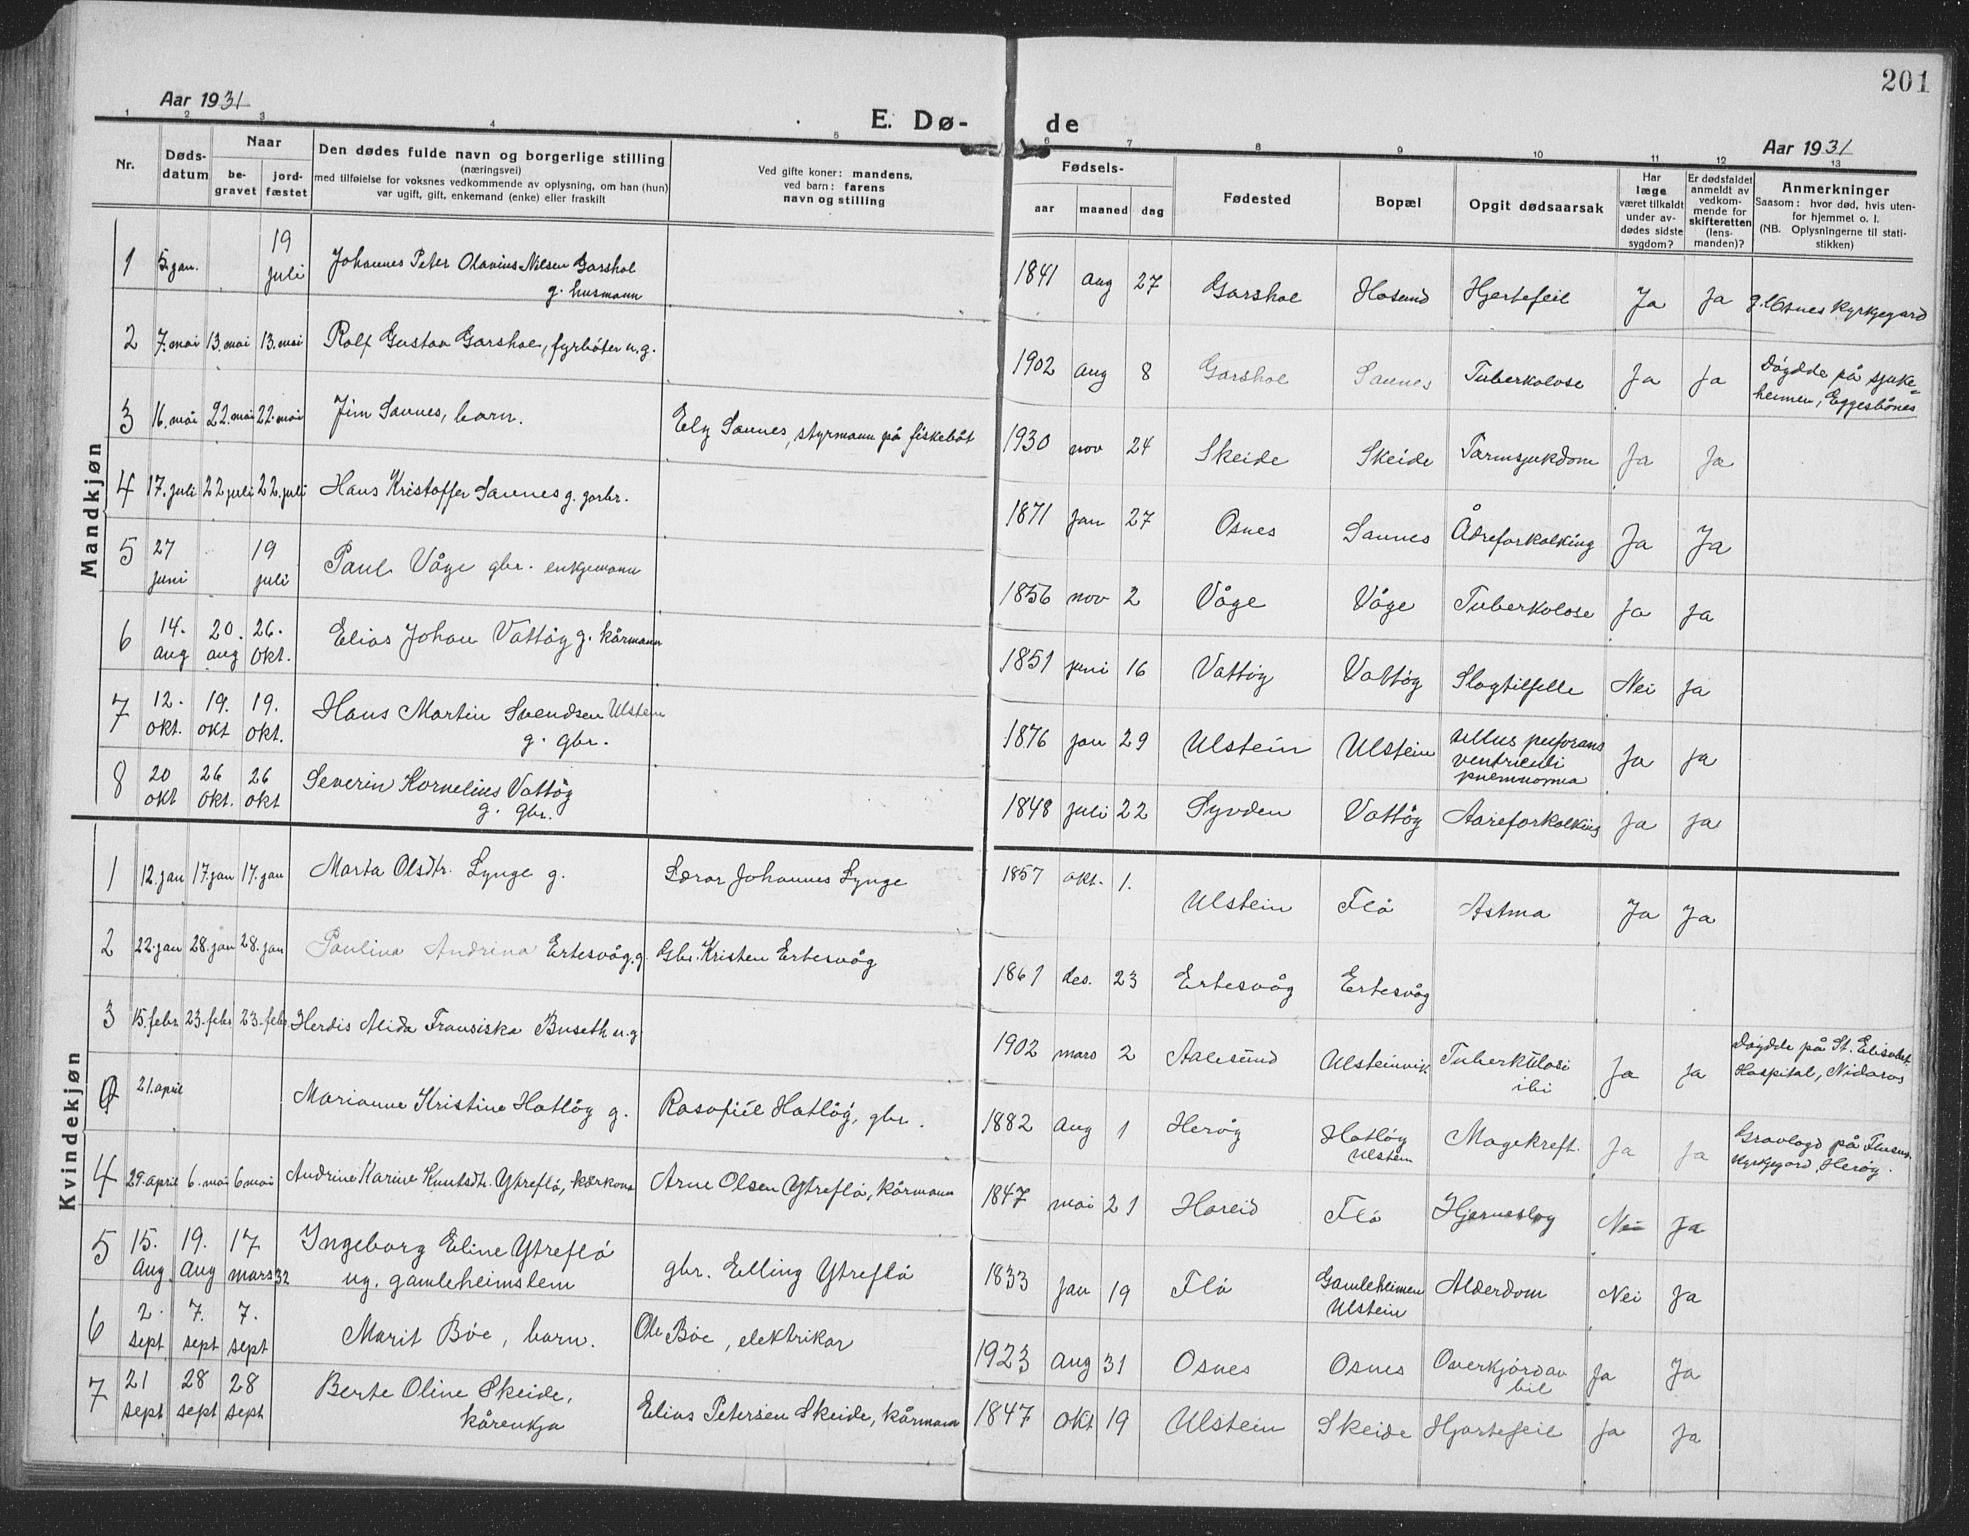 201
Aar 1931
E. Dø-
de
Aar 1931
1 2 3 4 5 6 7 8 9 10 11 12 13
Nr.
Døds-
datum
Naar
be-
gravet
jord-
fæstet
Den dødes fulde navn og borgerlige stilling
(næringsvei)
med tilføielse for voksnes vedkommende av oplysning, om han (hun)
var ugift, gift, enkemand (enke) eller fraskilt
Ved gifte koner: mandens,
ved barn: farens
navn og stilling
Fødsels-
aar
maaned
dag
Fødested
Bopæl
Opgit dødsaarsak
Har
læge
været tilkaldt
under av-
dødes sidste
sygdom?
Er dødsfaldet
anmeldt av
vedkom-
mende for
skifteretten
(lens-
manden)?
Anmerkninger
Saasom: hvor død, hvis uten-
for hjemmet o. l.
(NB. Oplysningerne til stati-
stikken)
Mandkjøn
1 5. jan. 19 juli Johannes Peter Olavius Nilsen Garshol
g. husmann
1841 aug 27 Garshol Hasund Hjertefeil Ja Ja Osnes kyrkjegard
2 7. mai 13. mai 13. mai Rolf Gustav Garshol, fyrbøter u.g.
1902 aug 8 Garshol Saunes Tuberkolose Ja Ja Døydde på sjuke-
heimen, Eggesbønes
3 16. mai 22. mai 22. mai Jim Saunes, barn. Ely Saunes, styrmann på fiskebåt
1930 nov 24 Skeide Skeide Tarmsjukdom Ja Ja
4 17. juli 22 juli 22. juli Hans Kristoffer Saunes g. garbr.
1871 jan 27 Osnes Saunes Ådreforkalking Ja Ja
5 27 juni 19 juli Paul Våge gbr. enkjemann
1856 nov 2 Våge Våge Tuberkolose Ja Ja
6 14. aug 20. aug 26. okt. Elias Johan Vattøy g. kårmann
1851 juni 16 Vattøy Vattøy Slagtilfelle Nei Ja
7 12. okt. 19. okt 19. okt. Hans Martin Svendsen Ulstein
g. gbr.
1876 jan 29 Ulstein Ulstein perforans
ventriculi
Ja Ja
8 20 okt 26 okt. 26 okt Severin Kornelius Vattøy
g. gbr.
1848 juli 22 Syvden Vattøy Aareforkalking Ja Ja
Kvindekjøn
1 12. jan 17. jan 17. jan Marta Olsdtr. Lynge g. Lærar Johannes Lynge
1857 okt. 1. Ulstein Flø Astma Ja Ja
2 22. jan 28. jan 28. jan Paulina Andrina Ertesvåg. g. Gbr. Kristen Ertesvåg
1861 des. 23 Ertesvåg Ertesvåg
3 15. febr. 23. febr 23. febr Herdis Alida Fransiska Buseth u.g.
1902 mars 2 Aalesund Ulsteinvik Tuberkulosi
Ja Ja Døydde på St. Elisabet
Hospital, Nidaros
21. april Marianne Kristine Hatløy g. Rasofiel Hatløy, gbr.
1882 aug 1 Herøy Hatløy
Ulstein
Magekreft. Ja Ja Gravlagd på
kyrkjegard, Herøy.
4 29. april 6. mai 6 mai Andrine Karine Knutsdtr. Ytreflø, kårkona Arne Olsen Ytreflø, kårmann
1847 mai 21 Hareid Flø Hjerneslag Nei Ja
5 15. aug. 19. aug 17 mars 32 Ingeborg Eline Ytreflø
ug. gamleheimslem
gbr. Elling Ytreflø
1833 jan 19 Flø Gamleheimen
Ulstein
Alderdom Nei Ja
6 2. sept 7. sept 7. sept Marit Bøe, barn. Ole Bøe, elektrikar
1923 aug 31 Osnes Osnes Overkjørd av
bil
Ja Ja
7 21 sept 28 sept 28 sept Berte Oline Skeide,
kårenkja
Elias Petersen Skeide, kårmann
1847 okt 19 Ulstein Skeide Hjartefeil Ja Ja